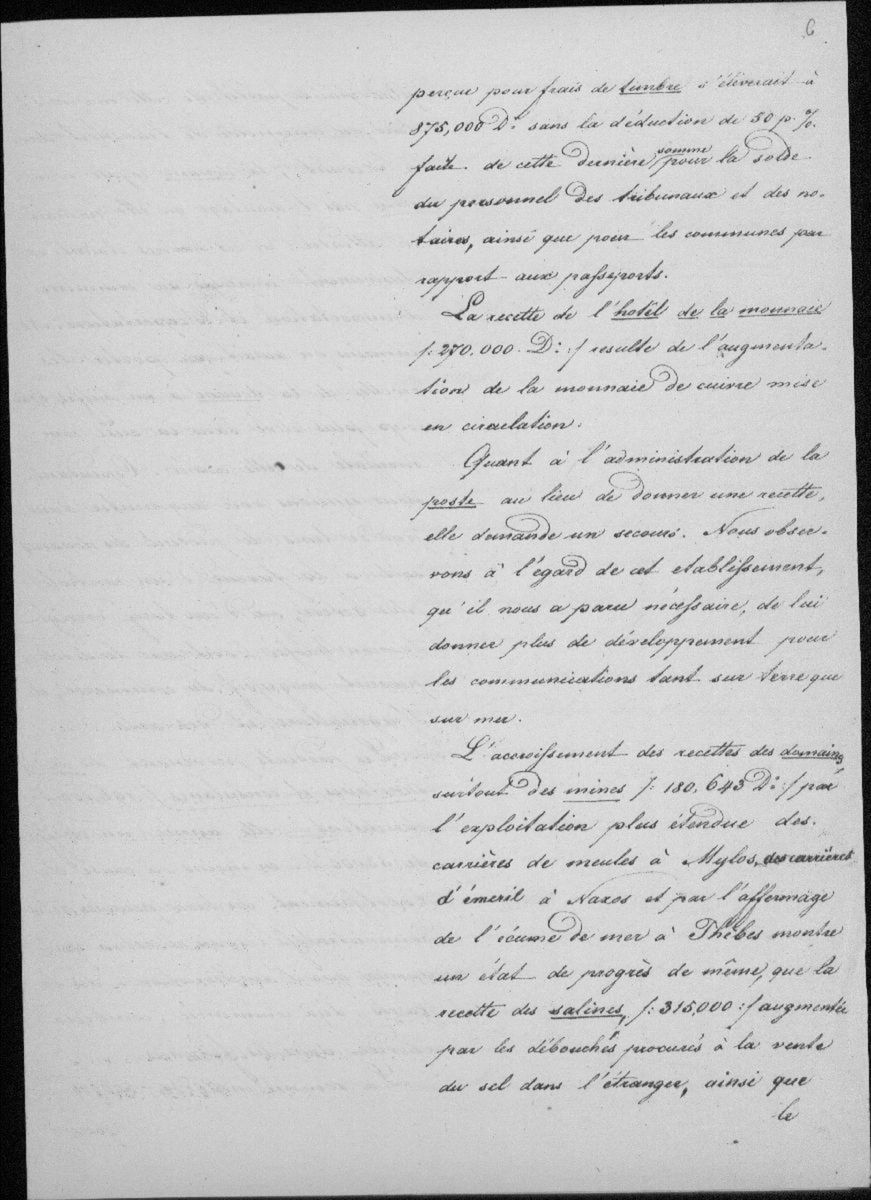 6
perçue pour frais de timbre s'éléverait à
875,000 D.s sans la déduction de 50 p. %.
faite de cette dernière somme pour la solde
du personnel des tribunaux et des no-
taires, ainsi que pour les communes par
rapport aux passeports.
La recette de l'hotêl de la monnaie
/: 270.000. D.s :/ resulte de l'augmenta-
tion de la monnaie de cuivre mise
en circulation.
Quant à l'administration de la
poste au lieu de donner une recette,
elle demande un secours. Nous obser-
vons à l'égard de cet etablissement,
qu'il nous a paru nécessaire, de lui
donner plus de développement pour
les communications tant sur terre que
sur mer.
L'accroissement des recettes des domaines,
surtout des mines /: 180.643 D.s :/ par
l'exploitation plus étendue des
carrières de meules à Mylos, des carrières
d'émeril à Naxos et par l'affermage
de l'écume de mer à Thêbes montre
un état de progrès de même, que la
recette des salines, /: 315,000 :/ augmentée
par les débouchés procurés à la vente
du sel dans l'étranger, ainsi que
le